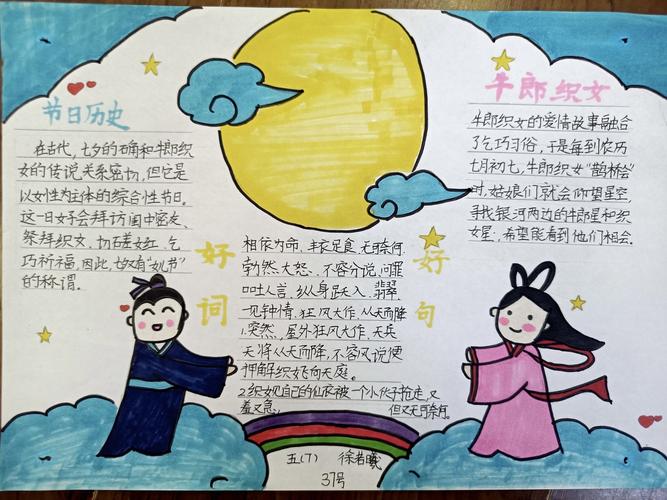 节日历史
在古代，七夕的确和牛郎织
女的传说关系密切，但它是
以女性为主体的综合性节日。
这一日女子会拜访闺中密友、
祭拜织女、切磋女红、乞
巧祈福。因此，七夕又有“女儿节”
的称谓。
牛郎织女
牛郎织女的爱情故事融合
了乞巧习俗，于是每到农历
七月初七，牛郎织女“鹊桥会”
时，姑娘们就会仰望星空，
寻找银河两边的牛郎星和织
女星，希望能看到他们相会。
好词
好句
相依为命、丰衣足食、无可奈何、
勃然大怒、不容分说、问罪
口吐人言、纵身跃入、翡翠
一见钟情、狂风大作、从天而降
1.突然，屋外狂风大作，天兵
天将从天而降，不容分说便
押解织女飞向天庭。
2.织女见自己的仙衣被一个小伙子抢走，又
羞又急，但又无可奈何。
五(7) 徐若曦
37号